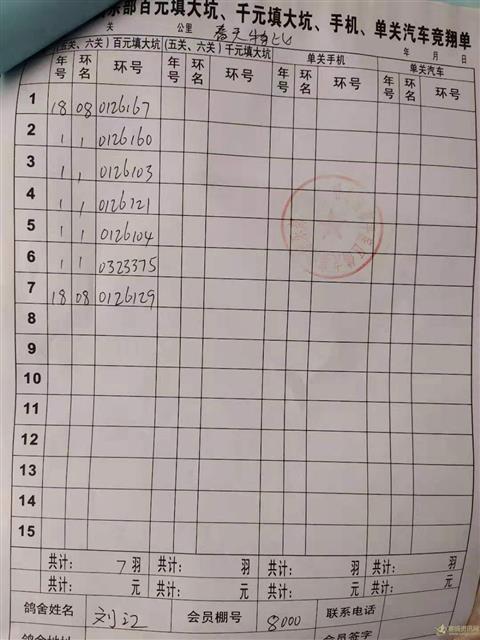 乐部百元填大坑、千元填大坑、手机、单关汽车竞翔单
关 公里 春天 年 月 日
(五关、六关)百元填大坑 (五关、六关)千元填大坑 单关手机 单关汽车
年号 环名 环号 年号 环名 环号 年号 环名 环号 年号 环名 环号
1 18 08 0126167
2 1 1 0126160
3 1 1 0126103
4 1 1 0126721
5 1 1 0126104
6 1 1 0323375
7 18 08 0126129
8
9
10
11
12
13
14
15
共计: 7 羽 共计: 羽 共计: 羽 共计: 羽
共计: 元 共计: 元 共计: 元 共计: 元
鸽舍姓名 刘江 会员棚号 8000 联系电话
鸽舍地址 会员签字